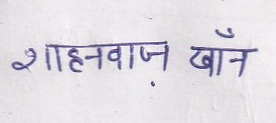 शाहनवाज़ खाँन